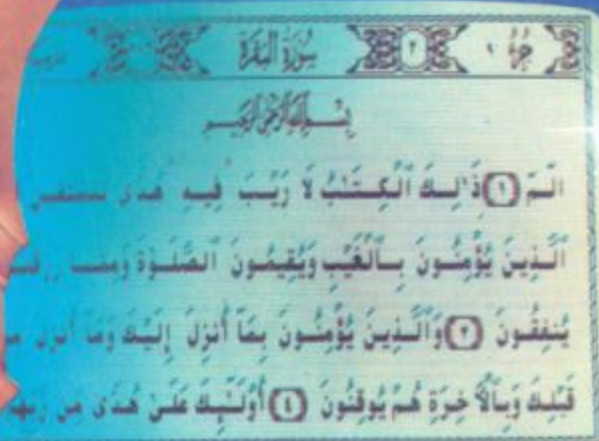 جزء ١ ٢ سورة البقرة
بسم الله الرحمن الرحيم
الٓمٓ ١ ذَٰلِكَ ٱلْكِتَٰبُ لَا رَيْبَ فِيهِ هُدًى
ٱلَّذِينَ يُؤْمِنُونَ بِٱلْغَيْبِ وَيُقِيمُونَ ٱلصَّلَوٰةَ وَمِمَّا
يُنفِقُونَ ٣ وَٱلَّذِينَ يُؤْمِنُونَ بِمَآ أُنزِلَ إِلَيْكَ وَمَآ أُنزِلَ
قَبْلِكَ وَبِٱلْأَخِرَةِ هُمْ يُوقِنُونَ ٤ أُو۟لَٰٓئِكَ عَلَىٰ هُدًى مِن رَبِّهِ